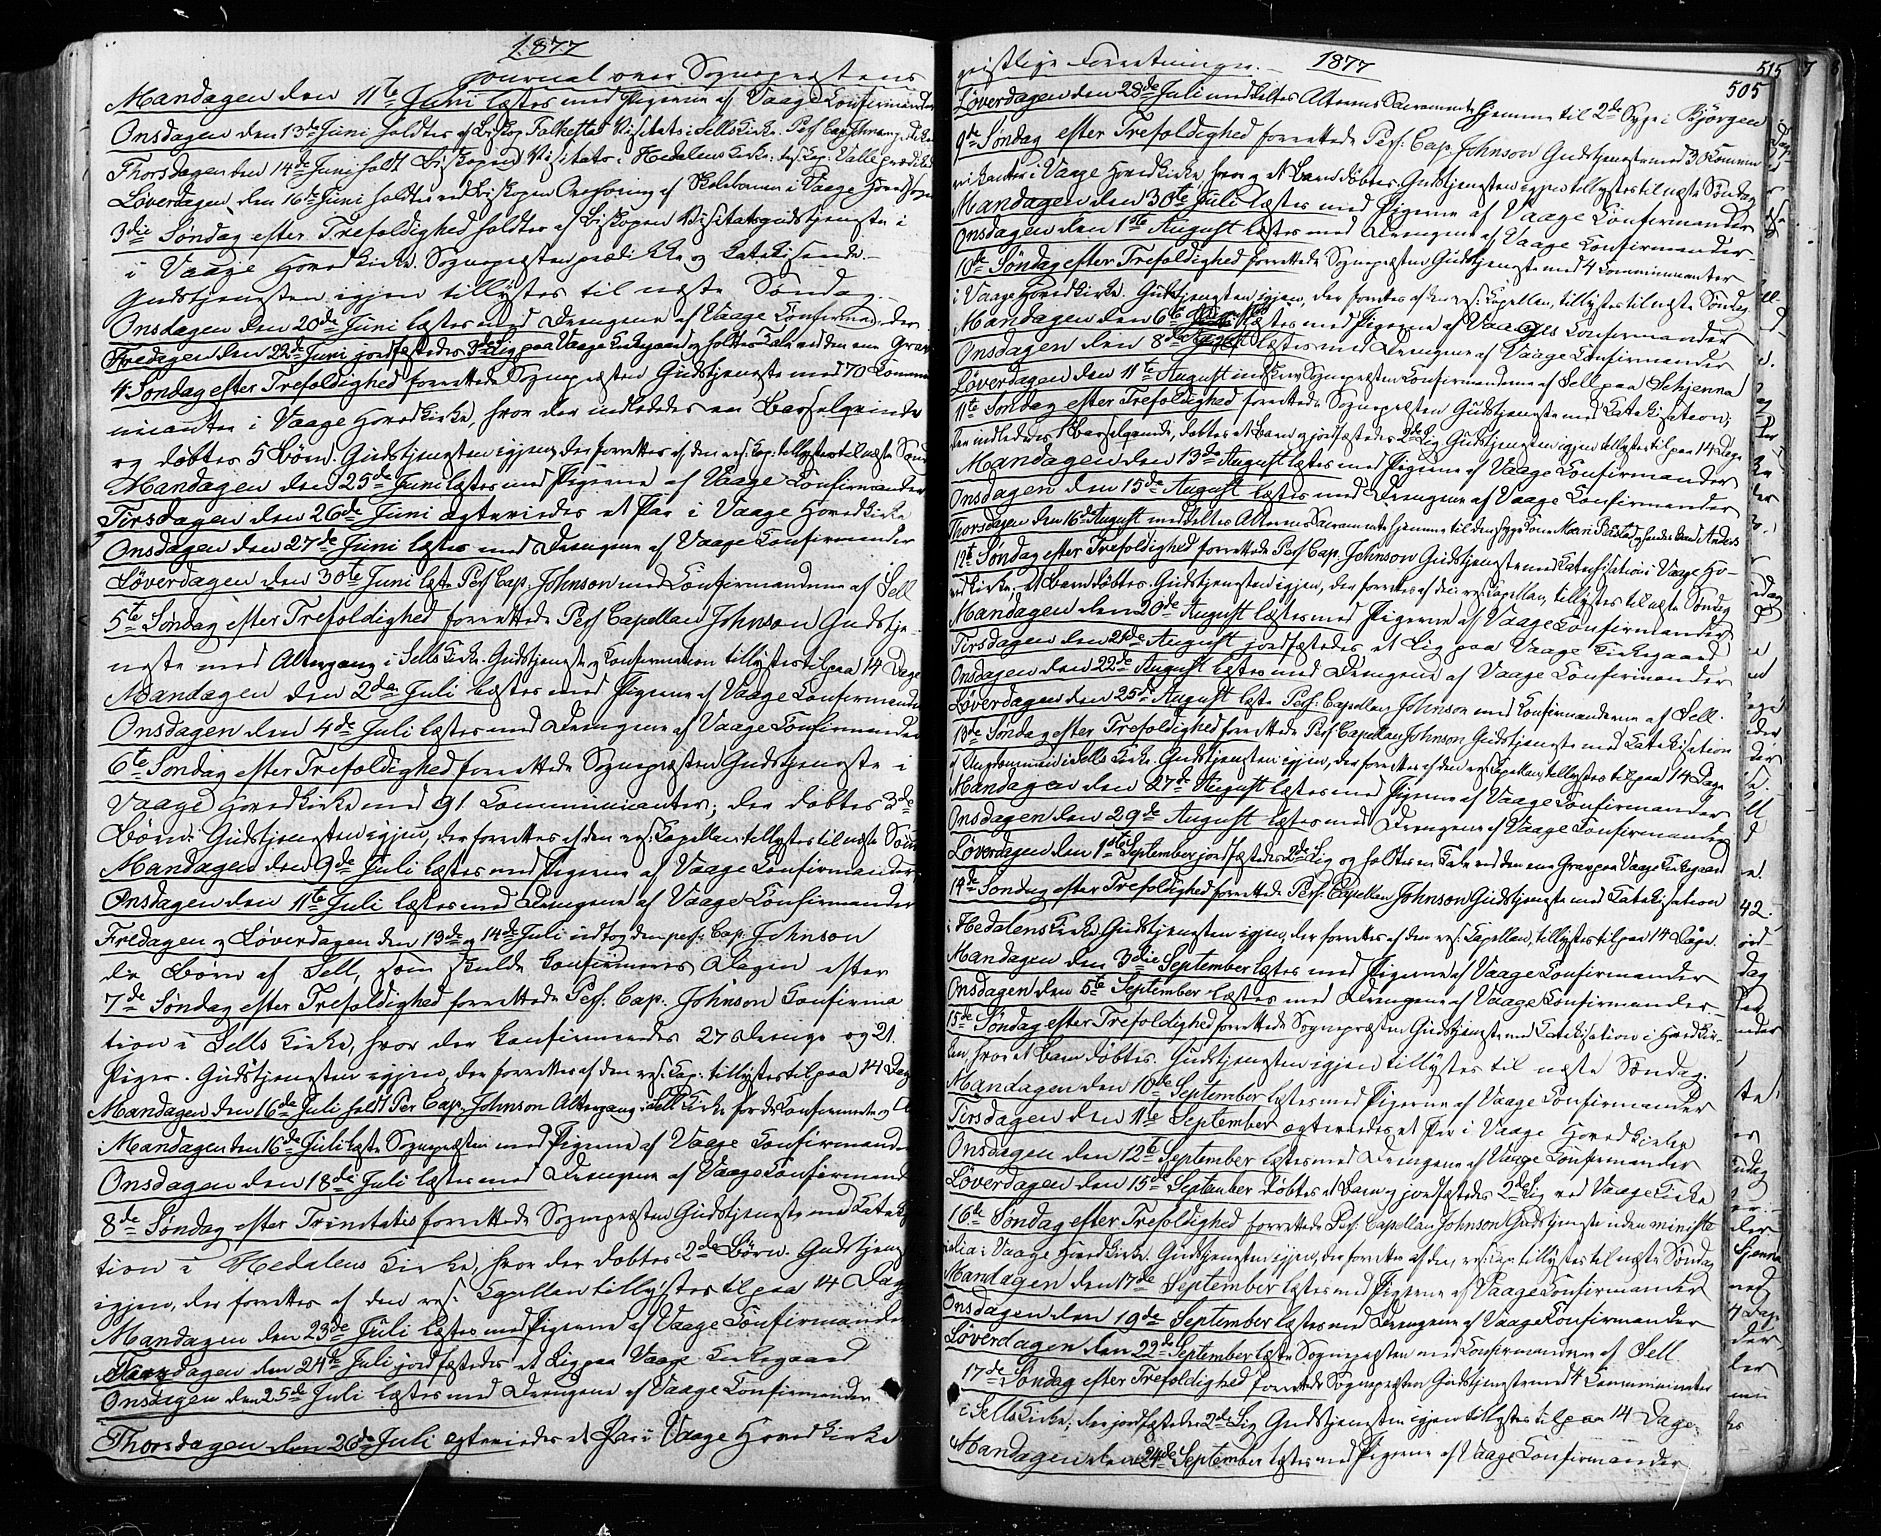 1877
Journal over Sognepræstens
Mandagen den 11te Juni læstes med Pigerne af Vaage Confirmander
Onsdagen den 13de Juni holdtes af Biskop Folkestad Visitats i Sells Kirke. Pers. Cap.
Thorsdagen den 14de Juni holdt Biskopen Visitats i Hedalens Kirke; res. Cap. Valle
Løverdagen den 16de Juni holdtes ved Biskopen Prøvning af Skolebørn i Vaage Hovedsogn
3die Søndag efter Trefoldighed holdtes af Biskopen Visitatsgudstjeneste i
i Vaage Hovedkirke. Sognepræsten prædikte og katekiserede.
Gudstjenesten igjen tillystes til næste Søndag.
Onsdagen den 20de Juni læstes med Drengene af Vaage Confirmander.
Fredagen den 22de Juni jordfæstedes 3de Lig paa Vaage Kirkegaard og holdtes Tale ved den ene Grav
4 Søndag efter Trefoldighed forrettede Sognepræsten Gudstjeneste med 70 Commu
nicanter i Vaage Hovedkirke, hvor der indlededes en Barselqvinde
og døbtes 5 Børn. Gudstjenesten igjen, der forrettes af den res. Cap. tillystes til næste Sønd
Mandagen den 25de Juni læstes med Pigerne af Vaage Confirmander
Tirsdagen den 26de Juni ægteviedes et Par i Vaage Hovedkirke
Onsdagen den 27de Juni læstes med Drengene af Vaage Confirmander
Løverdagen den 30te Juni læste Pers. Cap. Johnson med Confirmanderne af Sell
5te Søndag efter Trefoldighed forrettede Pers. Capellan Johnson Gudstje-
neste med Altergang i Sells Kirke. Gudstjeneste og Confirmation tillystes til paa 14 Dage
Mandagen den 2den Juli læstes med Pigerne af Vaage Confirmander
Onsdagen den 4de Juli læstes med Drengene af Vaage Confirmander
6te Søndag efter Trefoldighed forrettede Sognepræsten Gudstjeneste i
Vaage Hovedkirke med 91 Communicanter; der døbtes 3de
Børn. Gudstjenesten igjen, der forrettes af den res. Capellan, tillystes til næste Sønd
Mandagen den 9de Juli læstes med Pigerne af Vaage Confirmander
Onsdagen den 11te Juli læstes med Drengene af Vaage Confirmander
Fredagen og Løverdagen den 13de og 14de Juli indtog den pers. Cap. Johnson
de Børn af Sell, som skulde confirmeres Dagen efter
7de Søndag efter Trefoldighed forrettede Pers. Cap. Johnson Confirma
tion i Sells Kirke, hvor der confirmeredes 27 Drenge og 21
Piger. Gudstjenesten igjen, der forrettes af den res. Cap. tillystes til paa 14 Dag
Mandagen den 16de Juli holdt Per Cap. Johnson Altergang i Sells Kirke for de Confirmerte og
Mandagen den 16de Juli læste Sognepræsten med Pigerne af Vaage Confirmander
Onsdagen den 18de Juli læstes med Drengene af Vaage Confirmand
8de Søndag efter Trinitatis forrettede Sognepræsten Gudstjeneste med Kateki
tion i Hedalens Kirke, hvor der døbtes 2de Børn. Gudstjenes
igjen, der forrettes af den res. Capellan tillystes til paa 14 Dag
Mandagen den 23de Juli læstes med Pigerne af Vaage Confirmande
Tirsdagen den 24de Juli jordfæstedes et Lig paa Vaage Kirkegaard
Onsdagen den 25de Juli læstes med Drengene af Vaage Confirmander
Thorsdagen den 26de Juli ægteviedes et Par i Vaage Hovedkirke
geistlige Forretninger. 1877
515
505
Løverdagen den 28de Juli meddeltes Alterens Sacramente hjemme til 2de Syge i Bjørgen
9de Søndag efter Trefoldighed forrettede Pers. Cap. Johnson Gudstjeneste med 3 Commu
nikanter i Vaage Hovedkirke, hvor og et Barn døbtes. Gudstjenesten igjen tillystes til næste Søndag
Mandagen den 30te Juli læstes med Pigerne af Vaage Confirmander
Onsdagen den 1ste August læstes med Drengene af Vaage Confirmander
10de Søndag efter Trefoldighed forrettede Sognepræsten Gudstjeneste med 4 Communicanter
i Vaage Hovedkirke. Gudstjenesten igjen, der forrettes af den res. Capellan, tillystes til næste Søndag
Mandagen den 6te August læstes med Pigerne af Vaages Confirmander
Onsdagen den 8de August læstes med Drengene af Vaage Confirmander
Løverdagen den 11te August indskrev Sognepræsten Confirmanderne af Sell paa Sehjenna
11te Søndag efter Trefoldighed forrettede Sognepræsten Gudstjeneste med Katekisation;
der indlededes 1 Barselqvinde, døbtes et Barn og jordfæstedes 2de Lig Gudstjenesten igjen tillystes til paa 14 Dage
Mandagen den 13de August læstes med Pigerne af Vaage Confirmander
Onsdagen den 15de August læstes med Drengene af Vaage Confirmander
Thorsdagen den 16de August meddeltes Alterens Sacramente hjemme til den syge Kone Mari
12te Søndag efter Trefoldighed forrettede Pers. Cap. Johnson Gudstjeneste med Katekisation i Vaage Ho-
vedkirke; et Barn døbtes. Gudstjenesten igjen, der forrettes af den res. Capellan, tillystes til næste Søndag
Mandagen den 20de August læstes med Pigerne af Vaage Confirmander
Tirsdagen den 21de August jordfæstedes et Lig paa Vaage Kirkegaard
Onsdagen den 22de August læstes med Drengene af Vaage Confirmander
Løverdagen den 25de August læste Pers. Capellan Johnson med Confirmanderne af Sell.
13de Søndag efter Trefoldighed forrettede Pers. Capellan Johnson Gudstjeneste med Katekisation
af Ungdommen i Sells Kirke. Gudstjenesten igjen, der forrettes af den res. Capellan, tillystes til paa 14 Dage
Mandagen den 27de August læstes med Pigerne af Vaage Confirmander
Onsdagen den 29de August læstes med Drengene af Vaage Confirmander
Løverdagen den 1ste September jordfæstedes 2de Lig og holdtes en Tale ved den ene Grav paa Vaage Kirkegaard
14de Søndag efter Trefoldighed forrettede Pers. Capellan Johnson Gudstjeneste med Katekisation
i Hedalens Kirke. Gudstjenesten igjen, der forrettes af den res. Capellan, tillystes til paa 14 Dage.
Mandagen den 3die September læstes med Pigerne af Vaage Confirmander
Onsdagen den 5te September læstes med Drengene af Vaage Confirmander
15de Søndag efter Trefoldighed forrettede Sognepræsten Gudstjeneste med Katekisation i Hovedkir-
ken, hvor et Barn døbtes. Gudstjenesten igjen tillystes til næste Søndag.
Mandagen den 10de September læstes med Pigerne af Vaage Confirmander
Tirsdagen den 11te September ægteviedes et Par i Vaage Hovedkirke
Onsdagen den 12te September læstes med Drengene af Vaage Confirmander
Løverdagen den 15de September døbtes et Barn og jordfæstedes 2de Lig ved Vaage Kirke
16de Søndag efter Trefoldighed forrettede Pers. Capellan Johnson Gudstjeneste uden ministe
rialia i Vaage Hovedkirke. Gudstjenesten igjen, der forrettes af den res. Cap. tillystes til næste Søndag
Mandagen den 17de September læstes med Pigerne af Vaage Confirmander
Onsdagen den 19de September læstes med Drengene af Vaage Confirmander
Løverdagen den 22de September læste Sognepræsten med Confirmanderne af Sell
17de Søndag efter Trefoldighed forrettede Sognepræsten Gudstjeneste med 4 Communicanter
i Sells Kirke; der jordfæstedes 2de Lig Gudstjenesten igjen tillystes til paa 14 Dage.
Mandagen den 24de September læstes med Pigerne af Vaage Confirmander